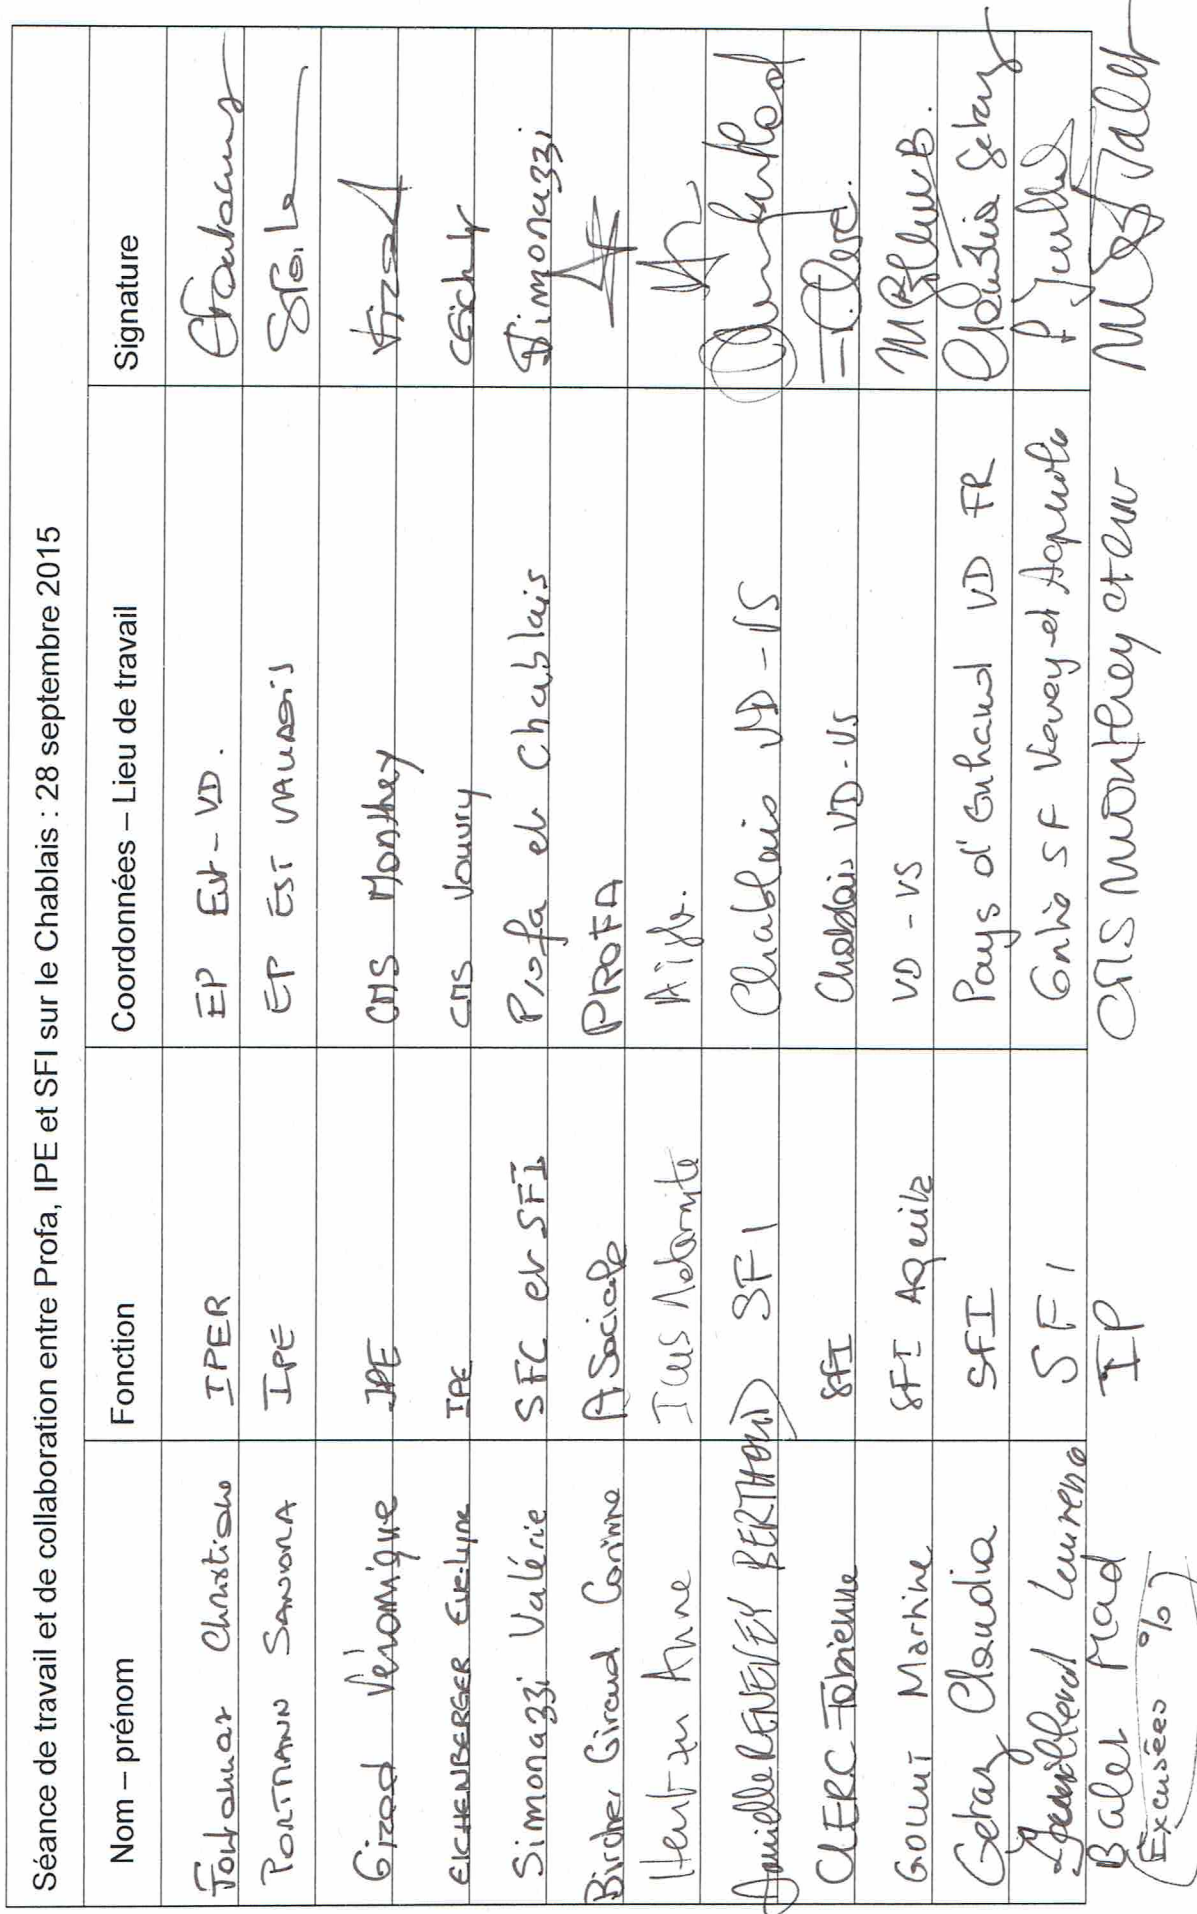 Séance de travail et de collaboration entre Profa, IPE et SFI sur le Chablais : 28 septembre 2015
Nom – prénom Fonction Coordonnées – Lieu de travail Signature
Christiane IPER EP Est - VD.
PORTMANN SANDRA IPE EP EST VAUDOIS
Girod Véronique IPE CMS Monthey Girod
EICHENBERGER Evelyne IPE CMS Vouvry
Simonazzi Valérie SFC et SFI Profa et Chablais Simonazzi
Bircher Giraud Corinne A Sociale PROFA
Anne Aigle.
Danielle RENEVEY BERTHOUD SFI Chablais VD - VS
CLERC Fabienne SFI Chablais VD - VS F. Clerc.
Martine SFI VD - VS
Getaz Claudia SFI Pays d'Enhaut VD FR Claudia Getaz
SFI SF Vevey et
Balet Mad IP CMS Monthey
Excusées %